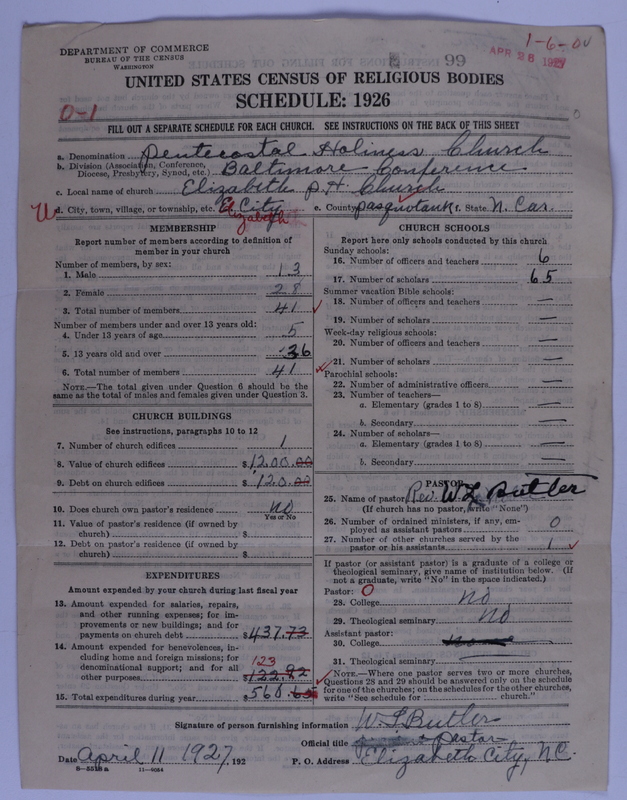 1-6-00
DEPARTMENT OF COMMERCE
BUREAU OF THE CENSUS
WASHINGTON
99
APR 28 1927
UNITED STATES CENSUS OF RELIGIOUS BODIES
SCHEDULE: 1926
0-1
FILL OUT A SEPARATE SCHEDULE FOR EACH CHURCH. SEE INSTRUCTIONS ON THE BACK OF THIS SHEET
a. Denomination Pentecostal Holiness Church
b. Division (Association, Conference, Diocese, Presbytery, Synod, etc.) Baltimore Conference
c. Local name of church Elizabeth P H Church
U d. City, town, village, or township, etc. E City Elizabeth e. County pasquotank f. State N. Car.
MEMBERSHIP
Report number of members according to definition of member in your church
Number of members, by sex:
1. Male 13
2. Female 28
3. Total number of members 41
Number of members under and over 13 years old:
4. Under 13 years of age 5
5. 13 years old and over 36
6. Total number of members 41
NOTE.—The total given under Question 6 should be the same as the total of males and females given under Question 3.
CHURCH BUILDINGS
See instructions, paragraphs 10 to 12
7. Number of church edifices 1
8. Value of church edifices $1200.00
9. Debt on church edifices $120.00
10. Does church own pastor's residence no
Yes or No
11. Value of pastor's residence (if owned by church) $
12. Debt on pastor's residence (if owned by church) $
EXPENDITURES
Amount expended by your church during last fiscal year
13. Amount expended for salaries, repairs, and other running expenses; for improvements or new buildings; and for payments on church debt $437.73
14. Amount expended for benevolences, including home and foreign missions; for denominational support; and for all other purposes 123 $122.92
15. Total expenditures during year $560.65
CHURCH SCHOOLS
Report here only schools conducted by this church
Sunday schools:
16. Number of officers and teachers 6
17. Number of scholars 65
Summer vacation Bible schools:
18. Number of officers and teachers —
19. Number of scholars —
Week-day religious schools:
20. Number of officers and teachers —
21. Number of scholars —
Parochial schools:
22. Number of administrative officers —
23. Number of teachers—
a. Elementary (grades 1 to 8) —
b. Secondary —
24. Number of scholars—
a. Elementary (grades 1 to 8) —
b. Secondary —
PASTOR
25. Name of pastor Rev. W. L Butler
(If church has no pastor, write "None")
26. Number of ordained ministers, if any, employed as assistant pastors 0
27. Number of other churches served by the pastor or his assistants 1
If pastor (or assistant pastor) is a graduate of a college or theological seminary, give name of institution below. (If not a graduate, write "No" in the space indicated.)
Pastor: 0
28. College no
29. Theological seminary no
Assistant pastor:
30. College
31. Theological seminary
NOTE.—Where one pastor serves two or more churches, Questions 28 and 29 should be answered only on the schedule for one of the churches; on the schedules for the other churches, write "See schedule for church."
Signature of person furnishing information W. L Butler
Official title Pastor
Date April 11 1927, 192
P. O. Address Elizabeth City, N.C.
8-5518 a 11-9064